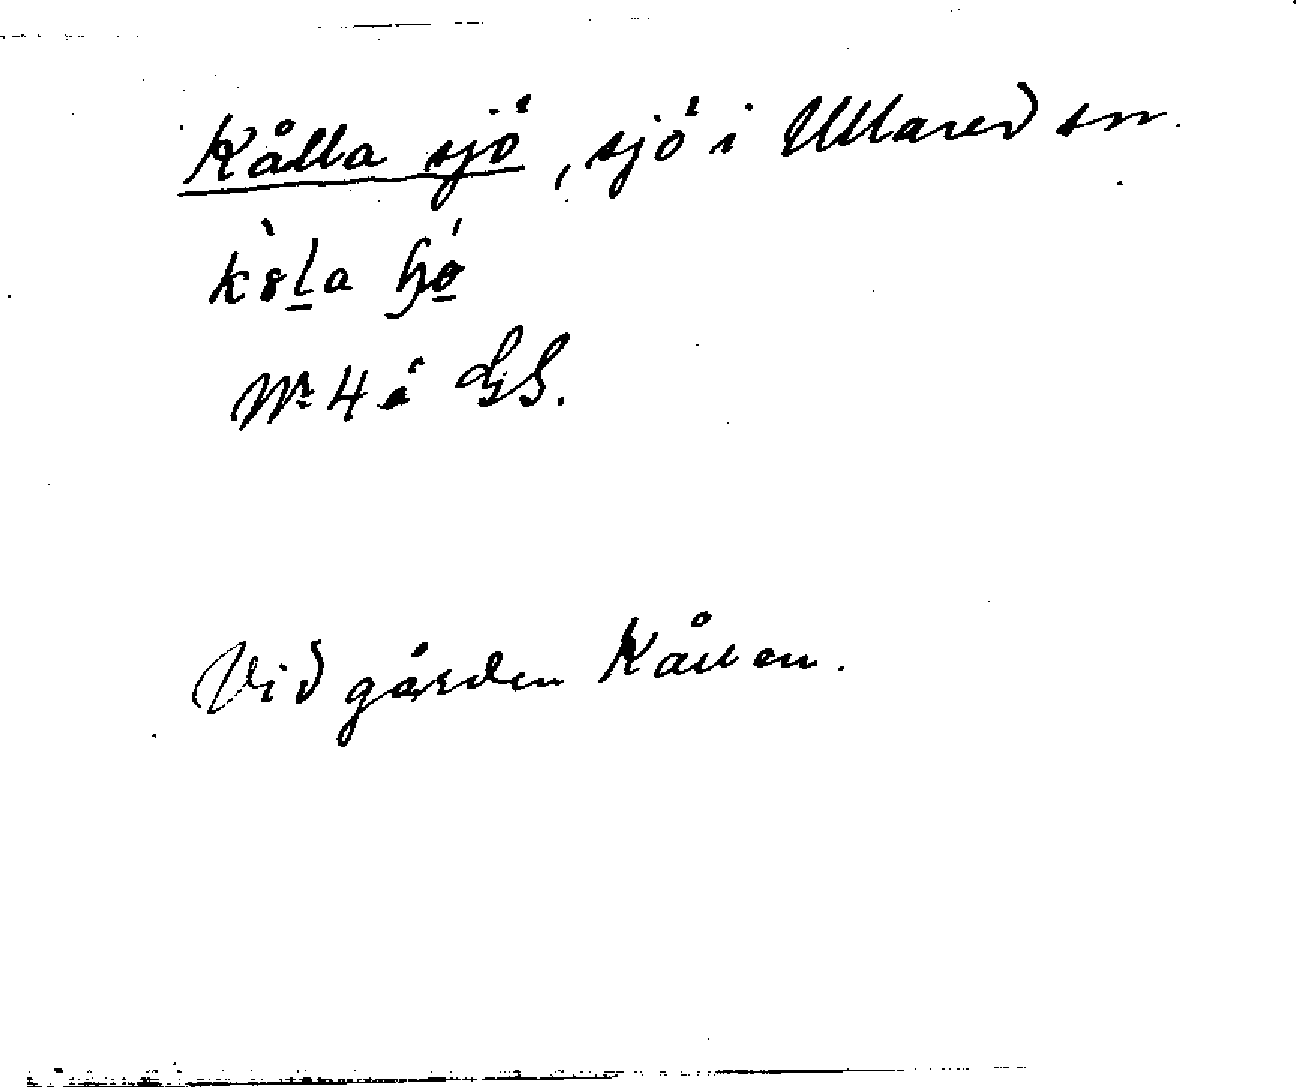 Kålla sjö, sjö i Ullared sn.
kòla hǿ
Nr 4 å GS.
Vid gården Kållen.